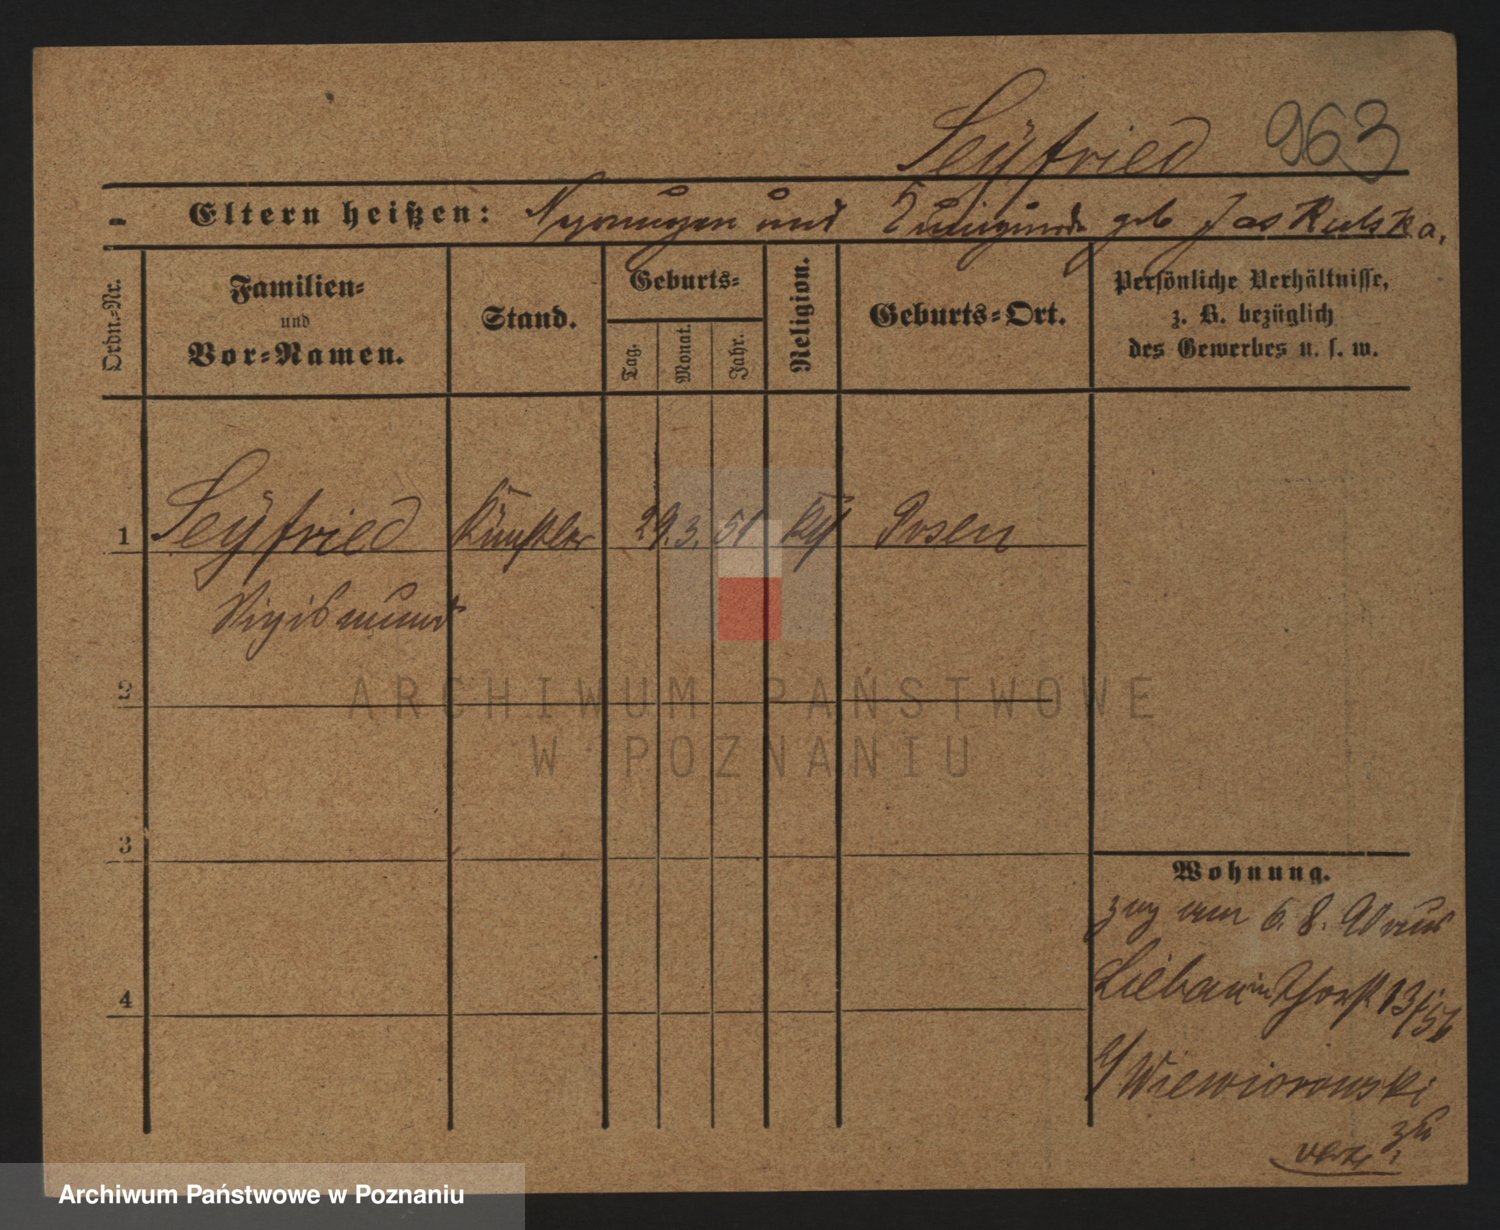 Seÿfried 963
Eltern heißen: und Kunigunde geb Jaskulska.
Ordn.-Nr.
Familien-
und
Vor-Namen.
Stand.
Geburts-
Tag.
Monat.
Jahr.
Religion.
Geburts-Ort.
Persönliche Verhältnisse,
z. B. bezüglich
des Gewerbes u. s. w.
1 Seÿfried Künstler 29. 3. 51 kth Posen
Sigismund
2
3
4
Wohnung.
zug am 6. 8. 90 aus
13/56
b/ Wiewiorowski
verz.
ARCHIWUM PAŃSTWOWE
W POZNANIU
Archiwum Państwowe w Poznaniu